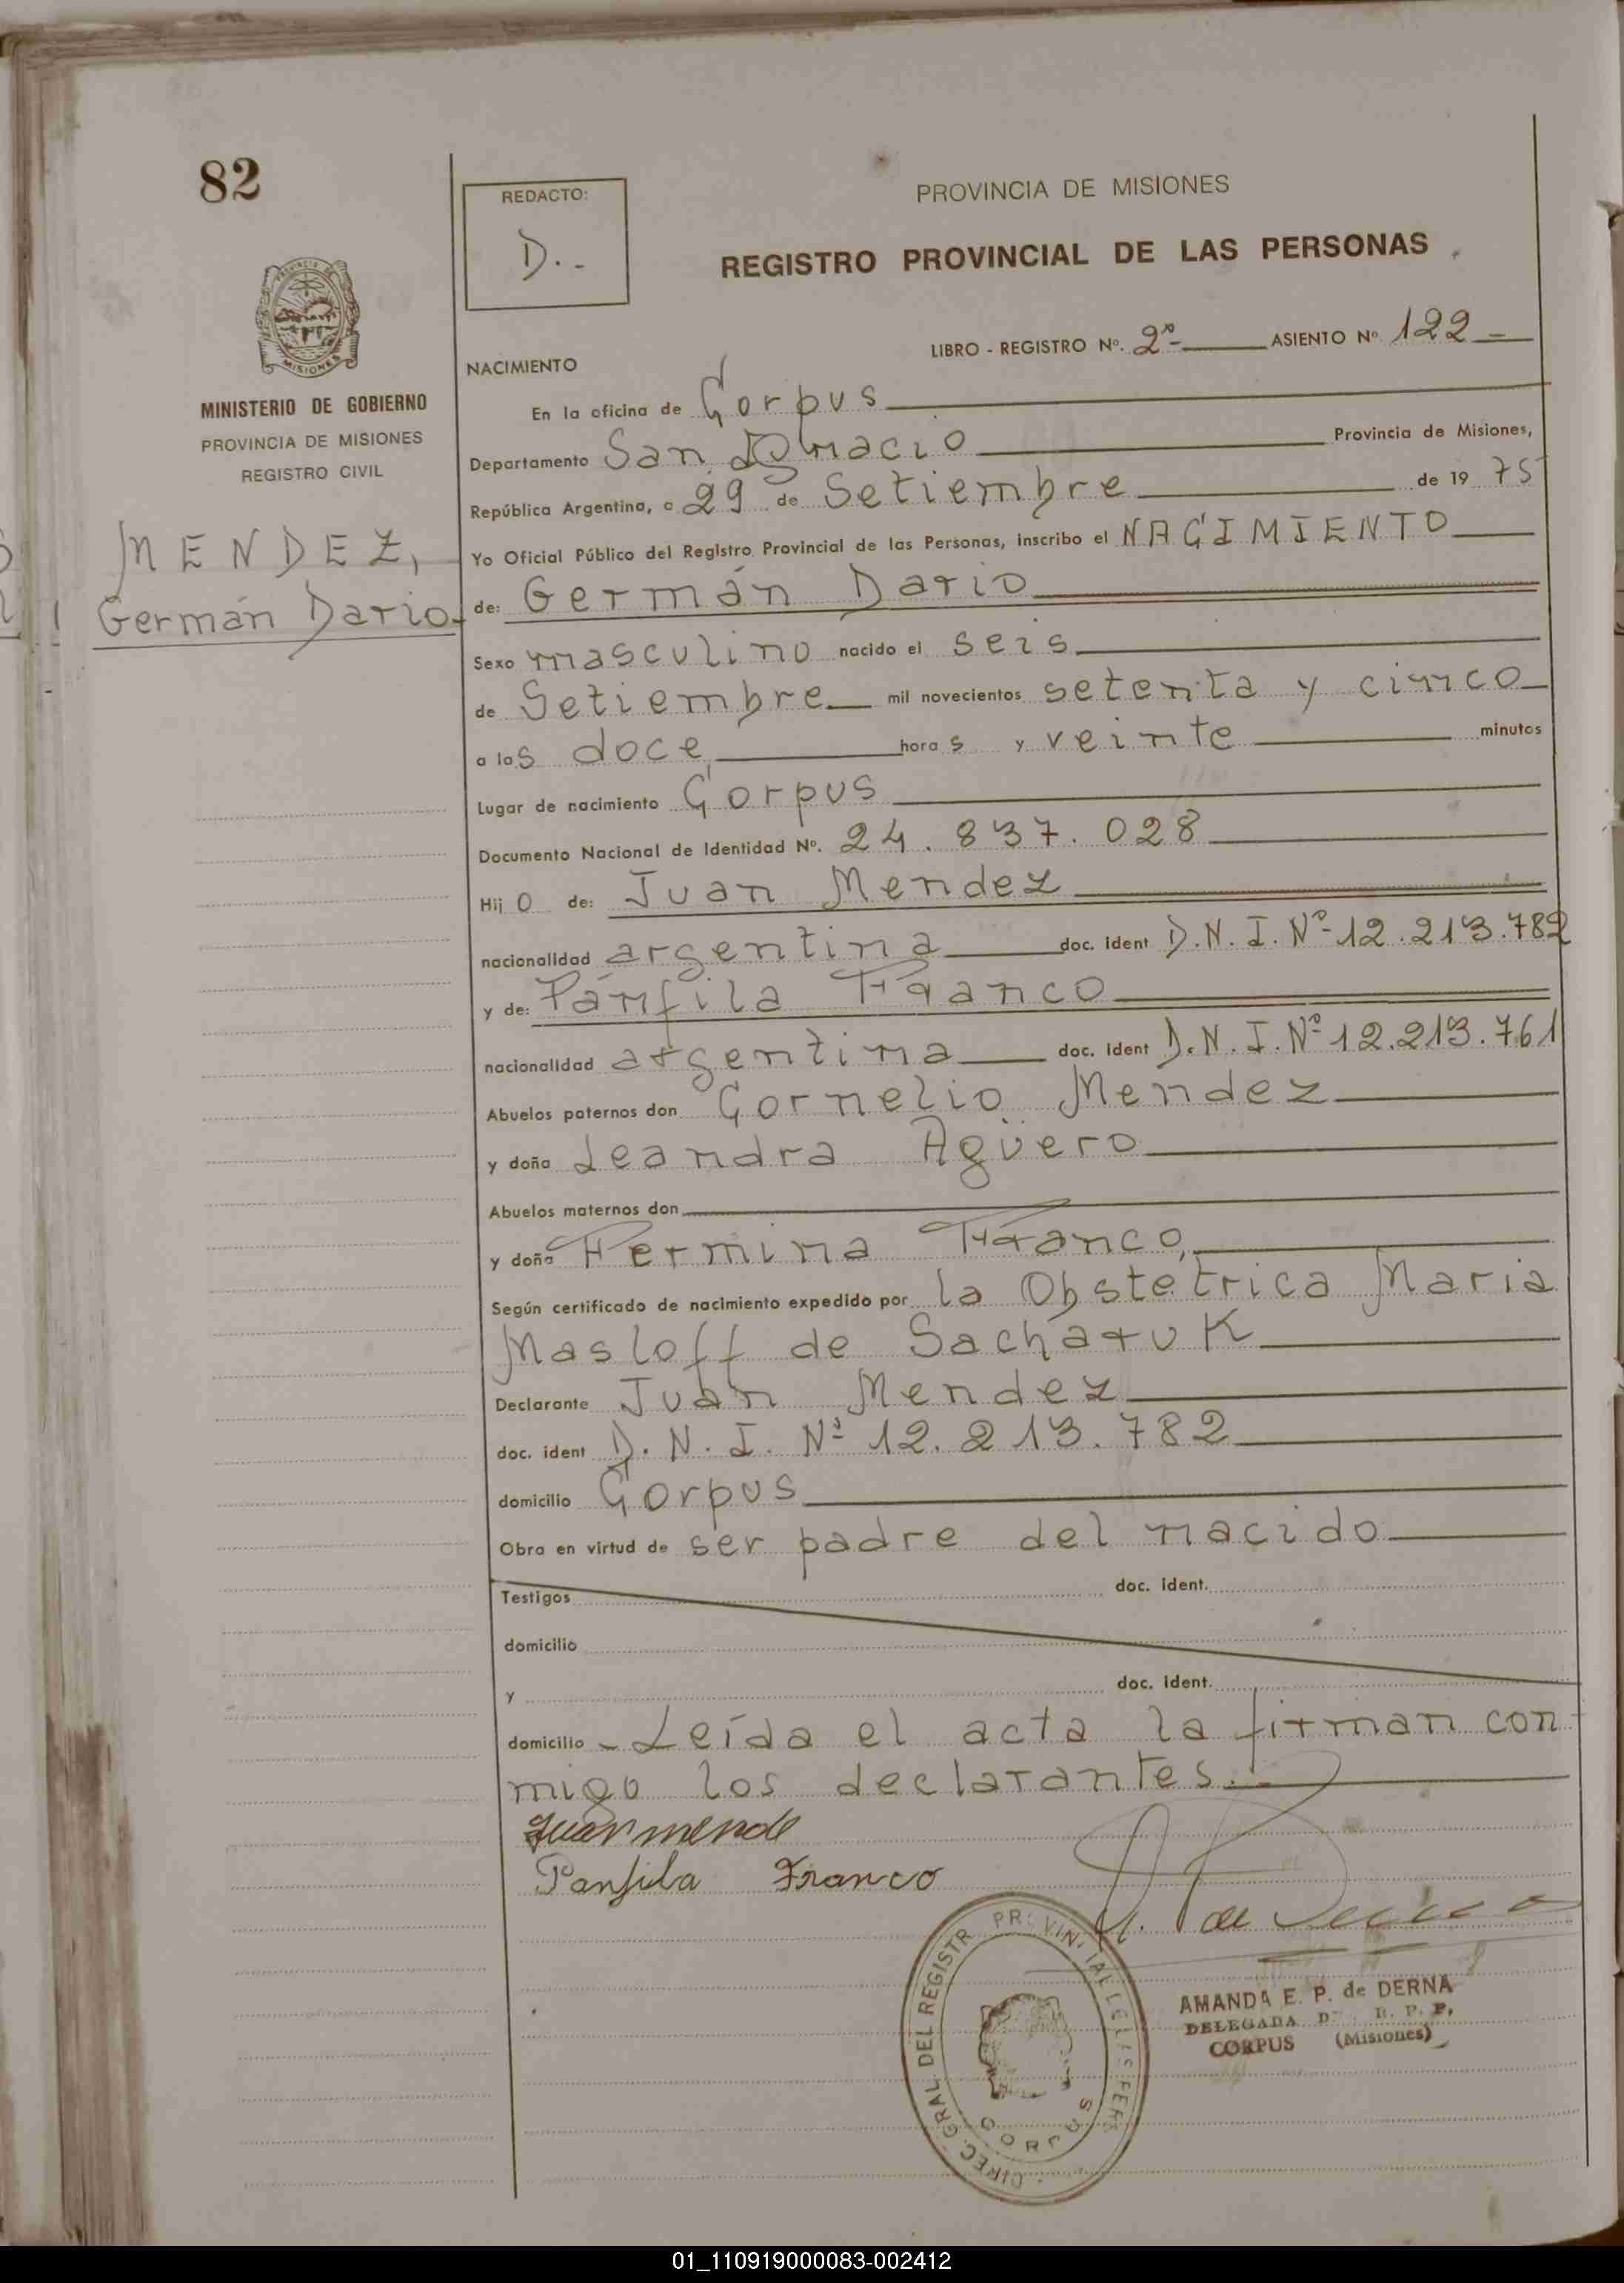 82
REDACTO:
D.-
PROVINCIA DE MISIONES
REGISTRO PROVINCIAL DE LAS PERSONAS
LIBRO - REGISTRO Nº. 2º- ASIENTO Nº 122 -
NACIMIENTO
MISIONES
MINISTERIO DE GOBIERNO
PROVINCIA DE MISIONES
REGISTRO CIVIL
MENDEZ,
Germán Dario.
En la oficina de Corpus
Departamento San Ignacio Provincia de Misiones,
República Argentina, a 29 de Setiembre de 19 75
Yo Oficial Público del Registro Provincial de las Personas, inscribo el NACIMIENTO
de: Germán Dario
Sexo masculino nacido el seis
de Setiembre mil novecientos setenta y cinco
a las doce, horas y veinte minutos
Lugar de nacimiento Corpus
Documento Nacional de Identidad Nº. 24.837.028
Hijo de: Juan Mendez
nacionalidad argentina doc. ident D.N.I.Nº-12.213.782
y de: Pánfila Franco
nacionalidad argentina doc. ident D.N.I.Nº-12.213.761
Abuelos paternos don Cornelio Mendez
y doña Leandra Agüero
Abuelos maternos don
y doña Fermina Franco,
Según certificado de nacimiento expedido por la Obstétrica Maria
Masloff de Sacharuk
Declarante Juan Mendez
doc. ident D.N.I. Nº 12.213.782
domicilio Corpus
Obra en virtud de ser padre del nacido
Testigos doc. ident.
domicilio
y doc. ident.
domicilio - Leída el acta la firman con
migo los declarantes.-
Juan mende
Panfila Franco
DIREC. GRAL DEL REGISTR
CORPUS
AMANDA E. P. de DERNA
DELEGADA R. P. P.
CORPUS (Misiones)
01_110919000083-002412